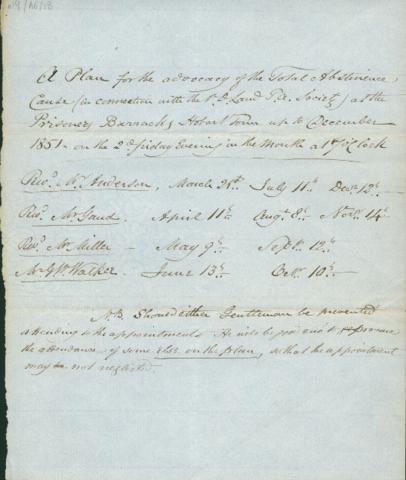 A Plan for the advocacy of the Total Abstinence
Cause (in connection with the V.D. Land T.A. Society) at the
Prisoners Barracks Hobart Town up to December
1851 - on the 2d friday Evening in the Month at 7 o'Clock
Revd. Mr. Anderson, March 21st. July 11th. Decr. 12th.
Revd. Mr. Gaud. April 11th. Augt. 8th. Novr. 14th.
Revd. Mr. Miller - May 9th. - Septr. 12th.
Mr. G.W. Walker. June 13th. - Octr. 10th. -
N.B. Should either Gentleman be prevented
attending to the appointments He is to be good eno' to procure
the attendance of some else on the plan, so that the appointment
may be not neglected.